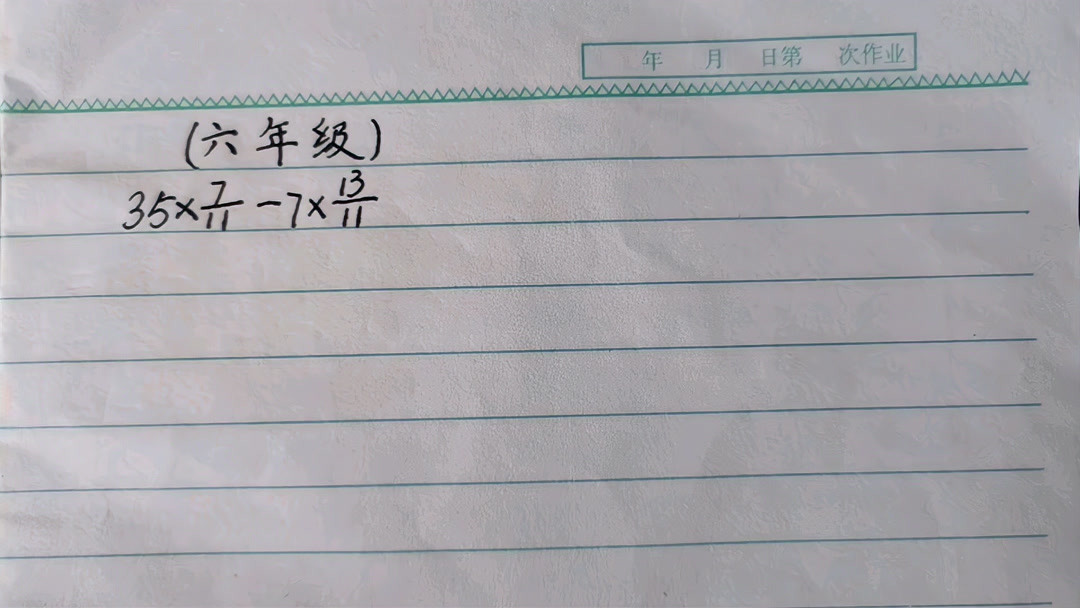 年 月 日第 次作业
(六年级)
35×7/11-7×13/11